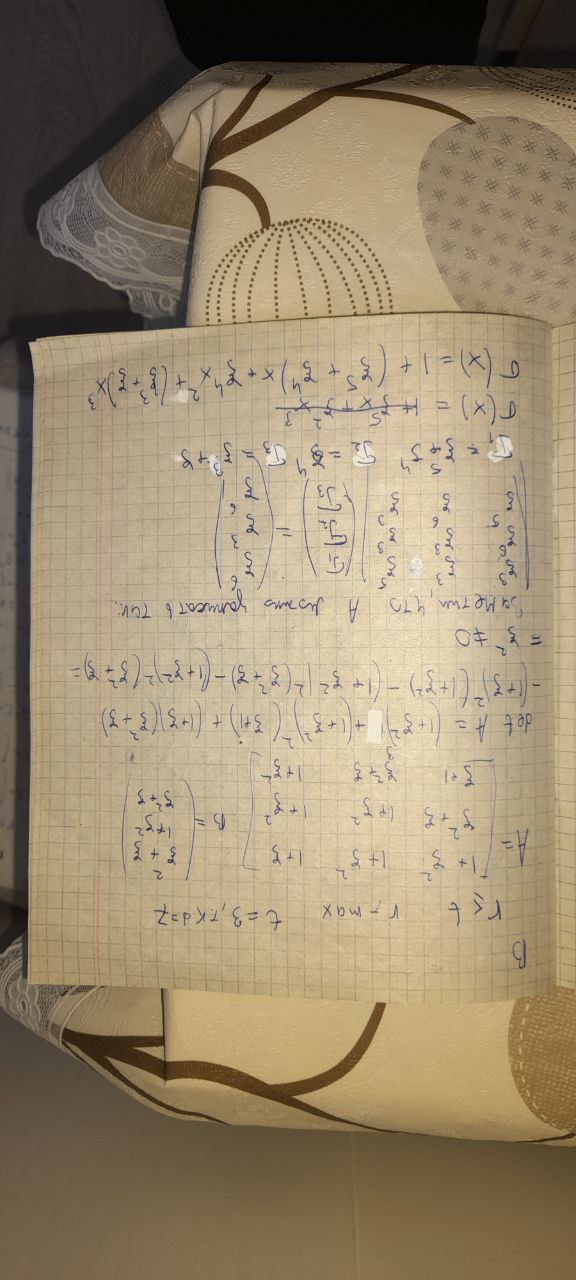 B
r ≤ t r - max t = 3, т.к d = 7
A = [ 1+ξ² 1+ξ² 1+ξ
ξ²+ξ 1+ξ² 1+ξ²
ξ+1 ξ²+ξ 1+ξ² ] B = ( ξ²+ξ
1+ξ²
ξ²+ξ )
det A = (1+ξ²)³ + (1+ξ²)²(ξ+1) + (1+ξ)(ξ²+ξ)
-(1+ξ)²(1+ξ²) - (1+ξ²)²(ξ²+ξ) - (1+ξ²)²(ξ²+ξ) =
= ξ² ≠ 0
Заметим, что A можно записать так:
( ξ³ ξ³ ξ⁵
ξ⁶ ξ³ ξ³
ξ⁵ ξ⁶ ξ³ ) ( σ₁
σ₂
σ₃ ) = ( ξ⁶
ξ³
ξ⁶ )
σ₁ = ξ⁵+ξ⁴ σ₂ = ξ⁴ σ₃ = ξ³+ξ
σ(x) = 1+ξ⁵x+ξ²x³
σ(x) = 1 + (ξ⁵+ξ⁴)x + ξ⁴x² + (ξ³+ξ)x³